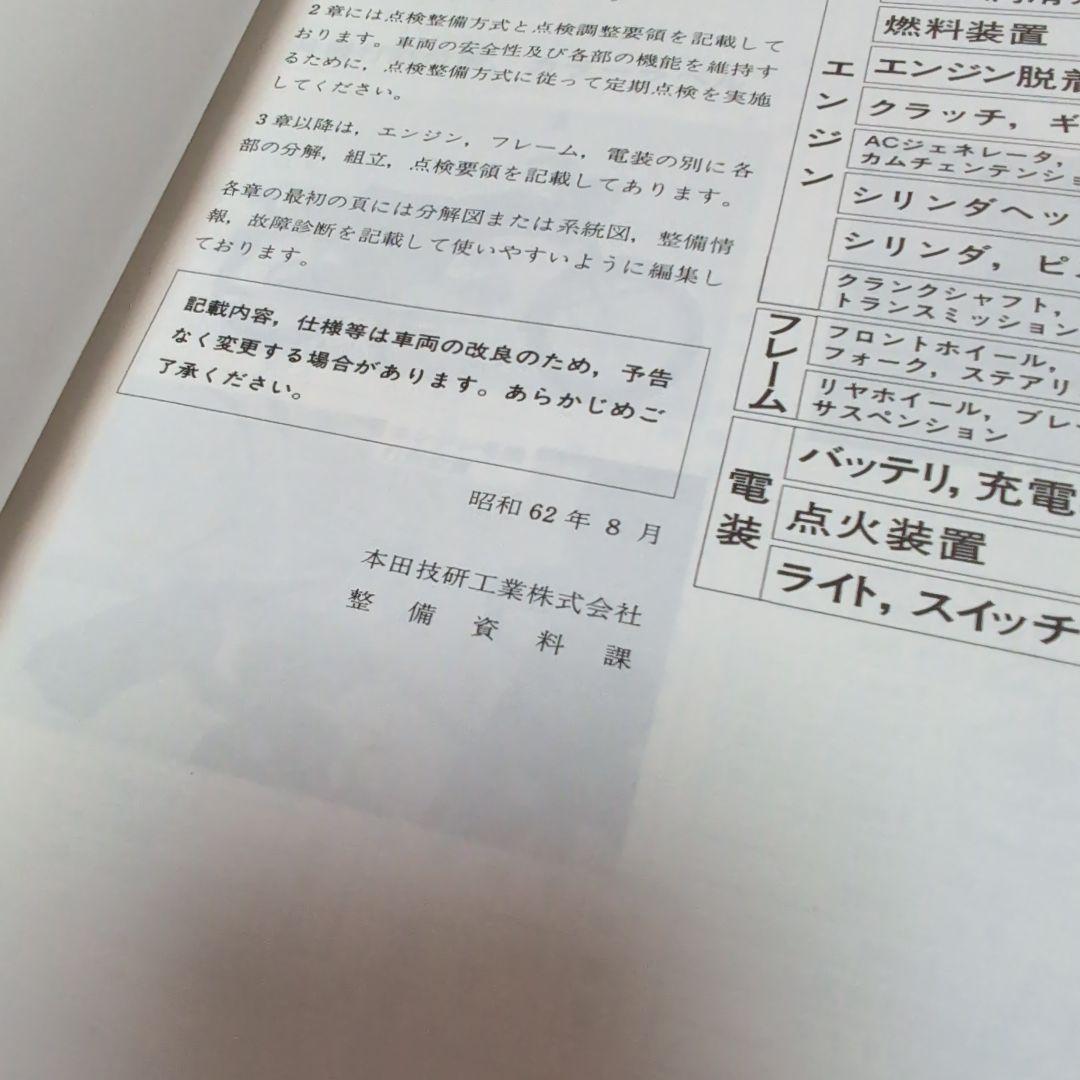 2章には点検整備方式と点検調整要領を記載して
おります。車両の安全性及び各部の機能を維持す
るために，点検整備方式に従って定期点検を実施
してください。
3章以降は，エンジン，フレーム，電装の別に各
部の分解，組立，点検要領を記載してあります。
各章の最初の頁には分解図または系統図，整備情
報，故障診断を記載して使いやすいように編集し
ております。
記載内容，仕様等は車両の改良のため，予告
なく変更する場合があります。あらかじめご
了承ください。
昭和62年 8 月
本田技研工業株式会社
整備資料課
エンジン
燃料装置
エンジン脱着
クラッチ，ギ
ACジェネレータ，
カムチェンテンショ
シリンダヘッ
シリンダ，ピ
クランクシャフト，
トランスミッション
フレーム
フロントホイール，
フォーク，ステアリ
リヤホイール，ブレー
サスペンション
電装
バッテリ，充電
点火装置
ライト，スイッチ